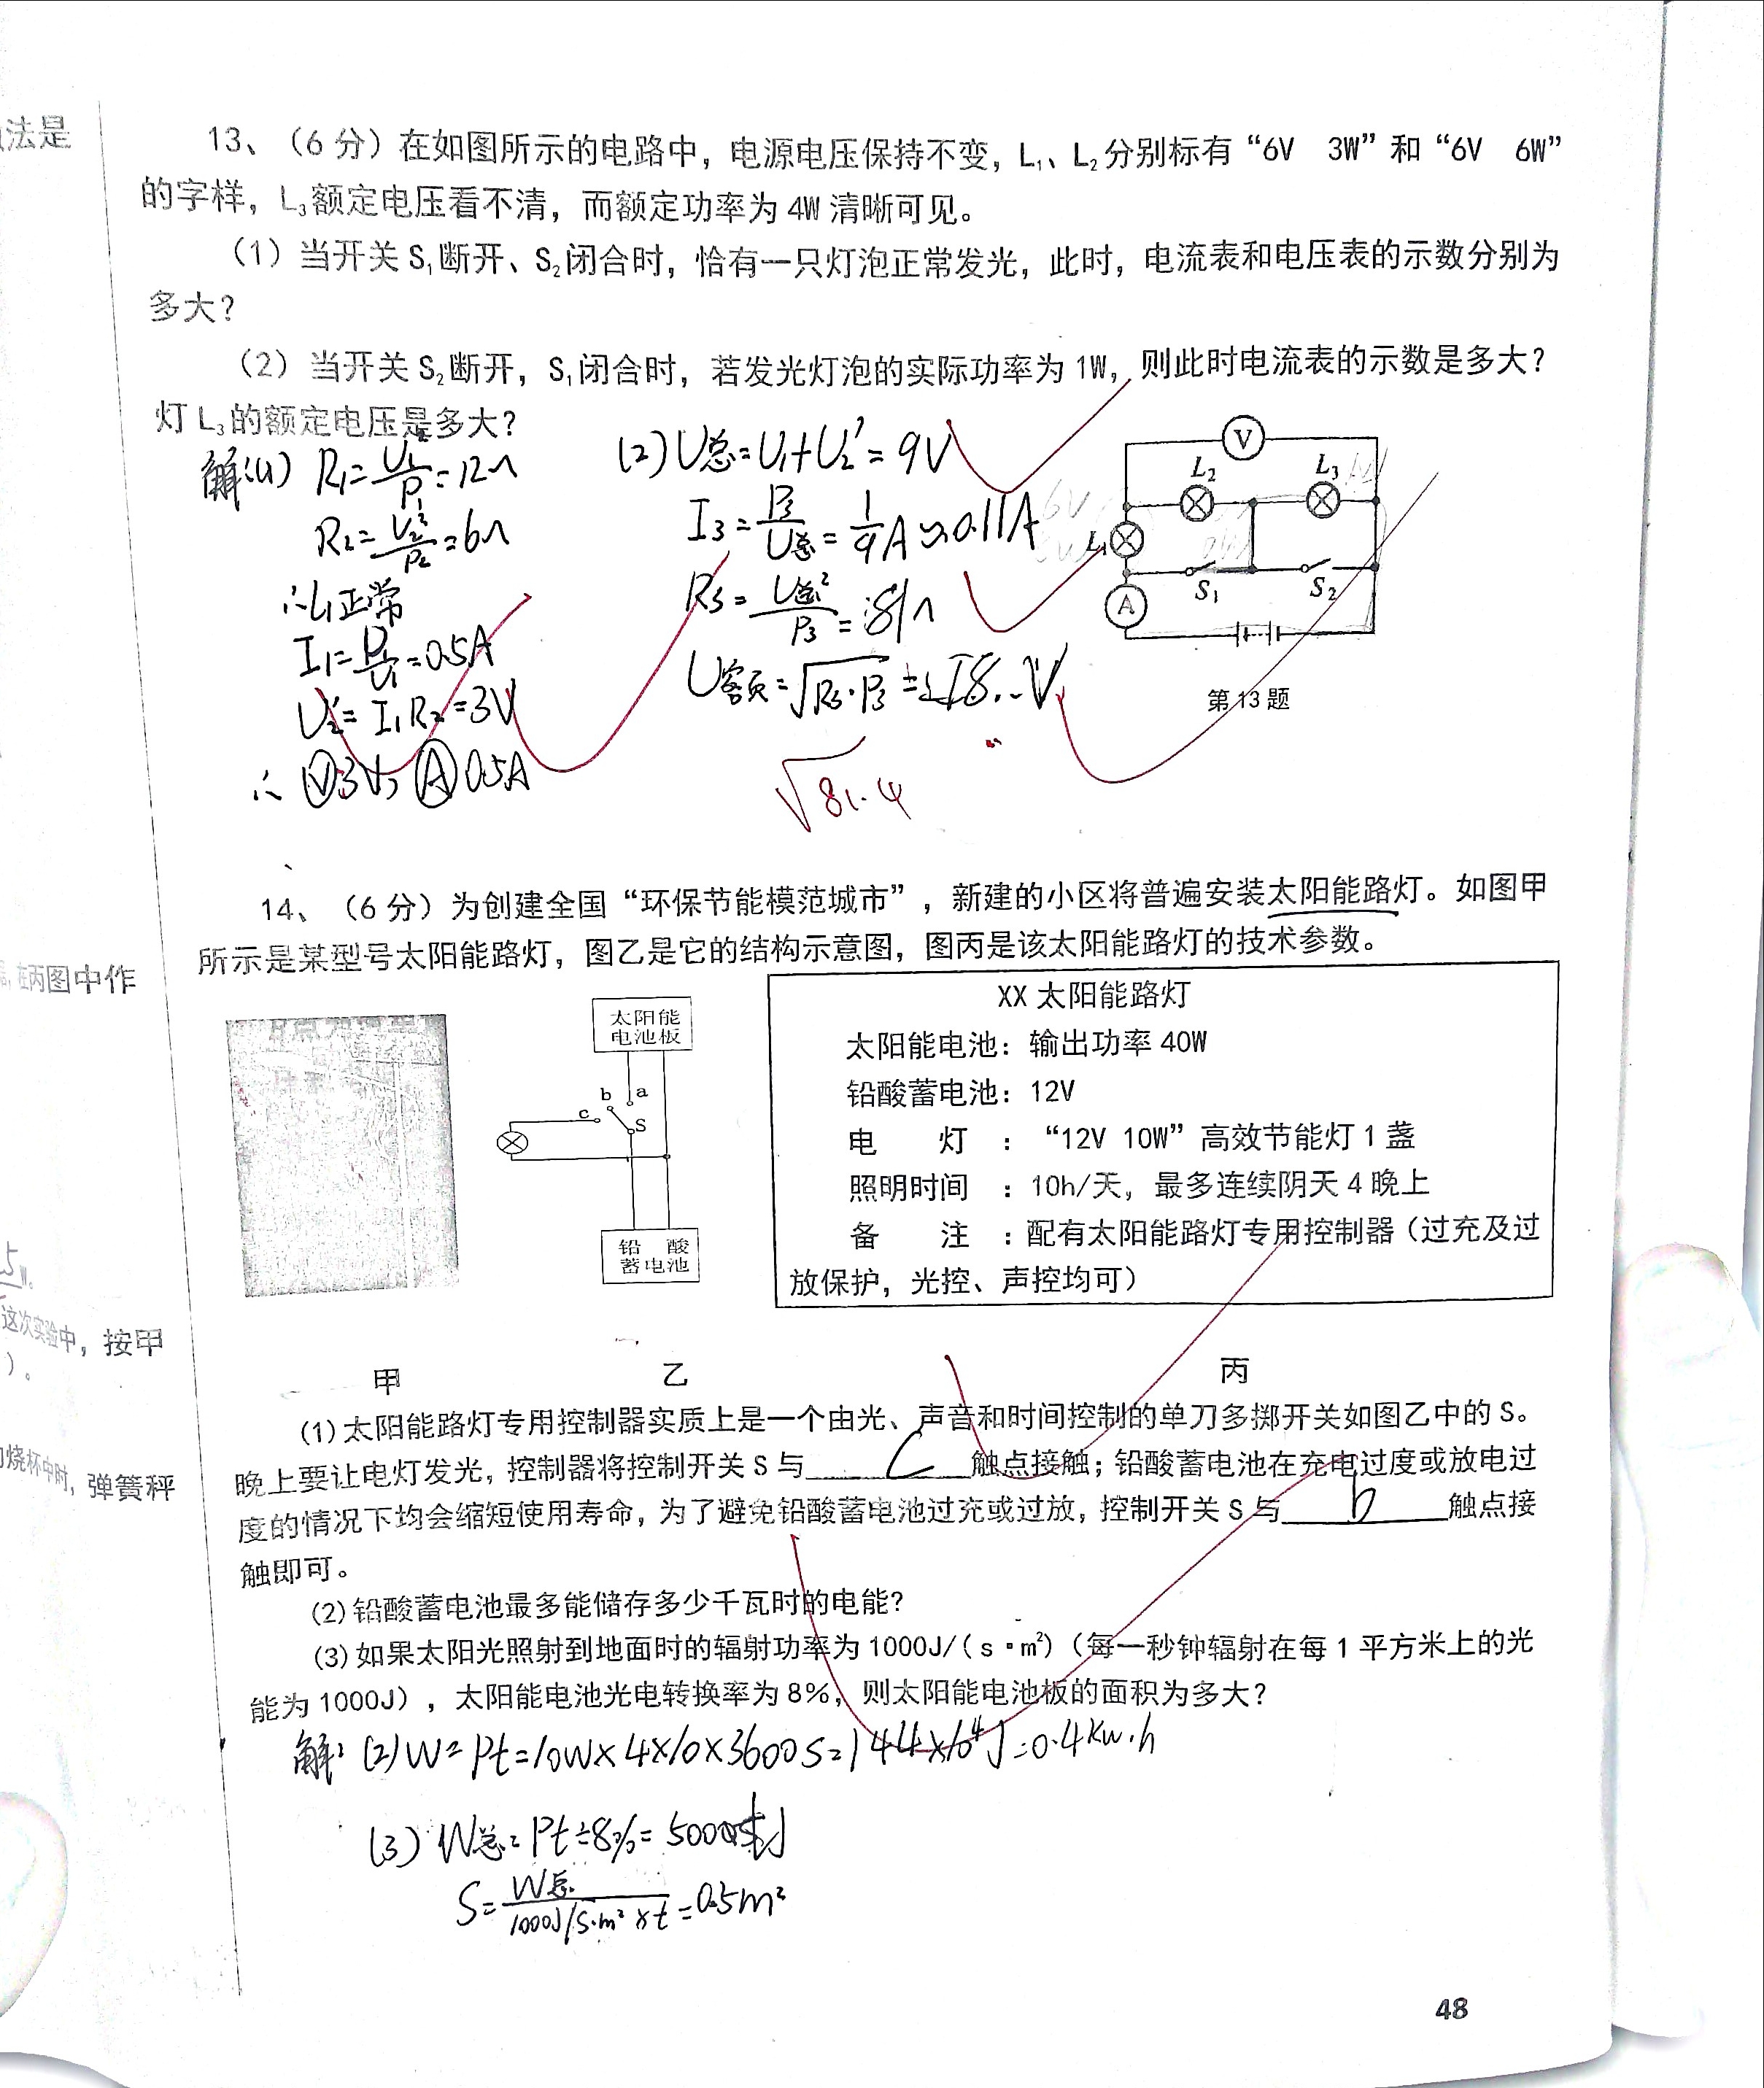 法是
13、（6 分）在如图所示的电路中，电源电压保持不变，L₁、L₂分别标有“6V 3W”和“6V 6W”
的字样，L₃额定电压看不清，而额定功率为 4W 清晰可见。
（1）当开关 S₁断开、S₂闭合时，恰有一只灯泡正常发光，此时，电流表和电压表的示数分别为
多大？
（2）当开关 S₂断开，S₁闭合时，若发光灯泡的实际功率为 1W，则此时电流表的示数是多大？
灯 L₃的额定电压是多大？
解:(1) R₁=U₁²/P₁=12Ω
R₂=U₂²/P₂=6Ω
∴L₁正常
I₁=P/U₁=0.5A
U₂'=I₁R₂=3V
∴ Ⓥ3V, Ⓐ0.5A
(2)U总=U₁+U₂'=9V
I₃=P₃/U总=1/9A≈0.11A
R₃=U总²/P₃=81Ω
U额=√R₃·P₃=18V
√81·4
V
L₂
L₃
L₁
S₁
S₂
A
第13题
14、（6 分）为创建全国“环保节能模范城市”，新建的小区将普遍安装太阳能路灯。如图甲
所示是某型号太阳能路灯，图乙是它的结构示意图，图丙是该太阳能路灯的技术参数。
丙图中作
太阳能
电池板
b
a
c
S
铅 酸
蓄电池
XX 太阳能路灯
太阳能电池：输出功率 40W
铅酸蓄电池：12V
电 灯 ：“12V 10W”高效节能灯 1 盏
照明时间 ：10h/天，最多连续阴天 4 晚上
备 注 ：配有太阳能路灯专用控制器（过充及过
放保护，光控、声控均可）
这次实验中，按甲
）。
甲
乙
丙
(1)太阳能路灯专用控制器实质上是一个由光、声音和时间控制的单刀多掷开关如图乙中的 S。
晚上要让电灯发光，控制器将控制开关 S 与 C 触点接触；铅酸蓄电池在充电过度或放电过
度的情况下均会缩短使用寿命，为了避免铅酸蓄电池过充或过放，控制开关 S 与 b 触点接
触即可。
烧杯中时，弹簧秤
(2)铅酸蓄电池最多能储存多少千瓦时的电能？
(3)如果太阳光照射到地面时的辐射功率为 1000J/(s·m²)（每一秒钟辐射在每 1 平方米上的光
能为 1000J），太阳能电池光电转换率为 8%，则太阳能电池板的面积为多大？
解: (2)W=Pt=10W×4×10×3600S=144×10⁴J=0.4kw·h
(3) W总=Pt÷8%=500tJ
S=W总/1000J/S·m²×t=0.5m²
48